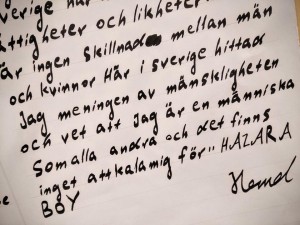 verige har
ättigheter och likheter
är ingen skillnad mellan män
och kvinnor Här i sverige hittad
Jag meningen av mänskligheten
och vet att Jag är en människa
som alla andra och det finns
inget att kalamig för "HAZARA
BOY